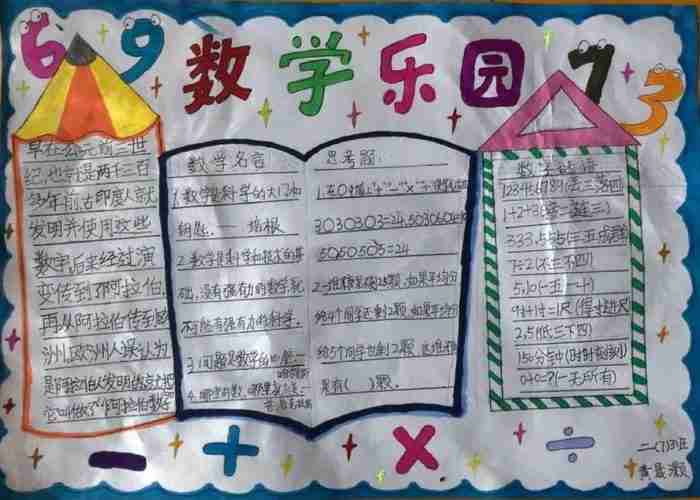 69 数学乐园 73
早在公元前三世
纪,也就是两千三百
多年前古印度人就
发明并使用这些
数字后来经过演
变传到了阿拉伯,
再从阿拉伯传到
洲,欧洲人误认为
是阿拉伯人发明的
它叫做了"阿拉伯数字
数学名言
1.数学是科学的大门和
钥匙.——培根
2.数学是科学和技术的基
础,没有强有力的数学就
不可能有强有力的科学.
3.问题是数学的心脏.
4.哪里有数,哪里就有美.
思考题:
1.在○中填上"+""-""×""÷"
3○3○3○3=24,5○3○6○
5○5○5○5=24
2.一堆糖
给4个同学还剩2颗,如果平均分
给5个同学也剩2颗
是有( )颗.
数学
123456789(丢三落四
1+2+3(接二连三)
333,555(三五成群
7÷2(不三不四)
5,10(一五一十)
9寸+1寸=1尺(得寸进尺
2,5(低三下四)
15分=
0+0=?(一无所有)
− + × ÷
二(7)班